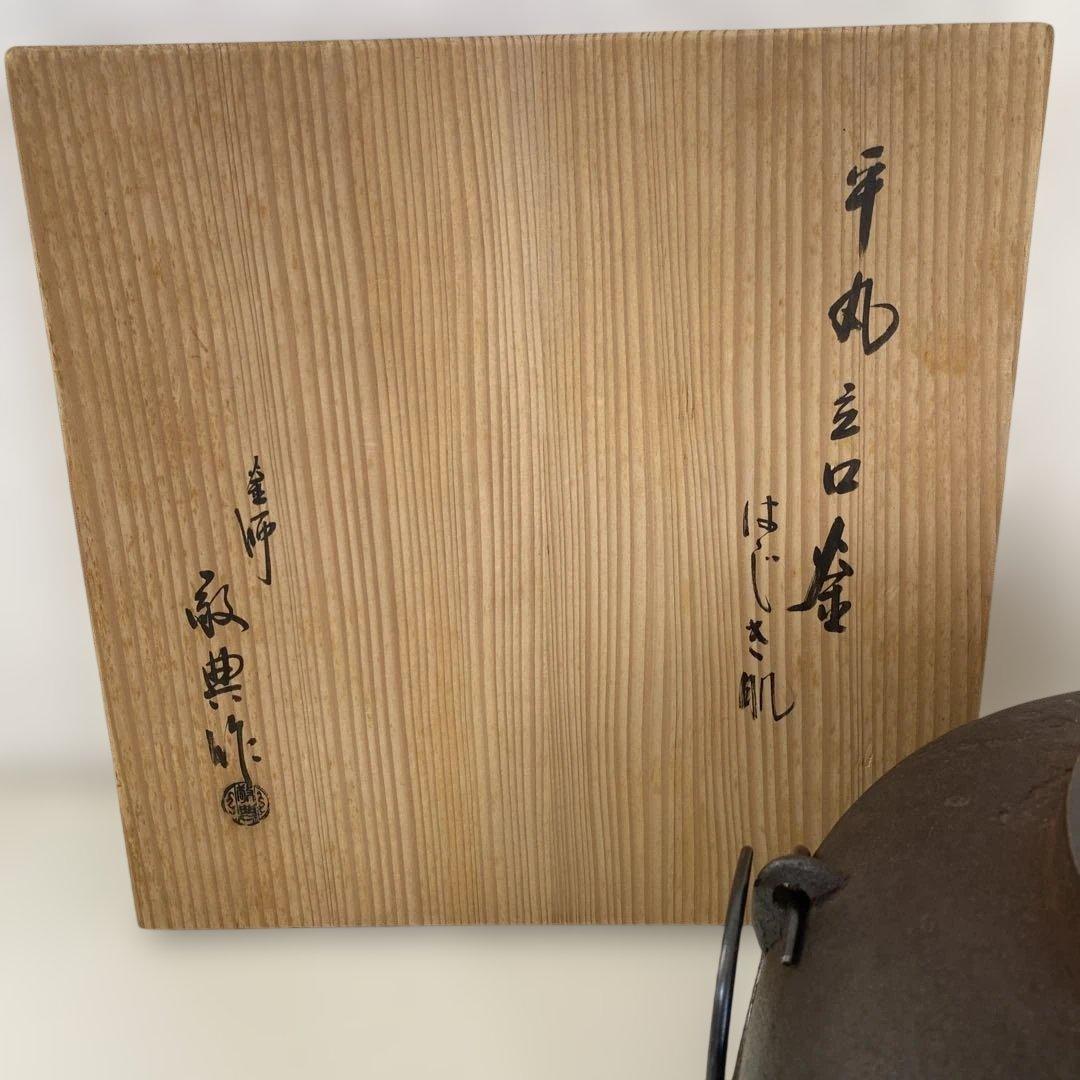 平丸立口釜
はじき肌
釜師
敬典作
敬典